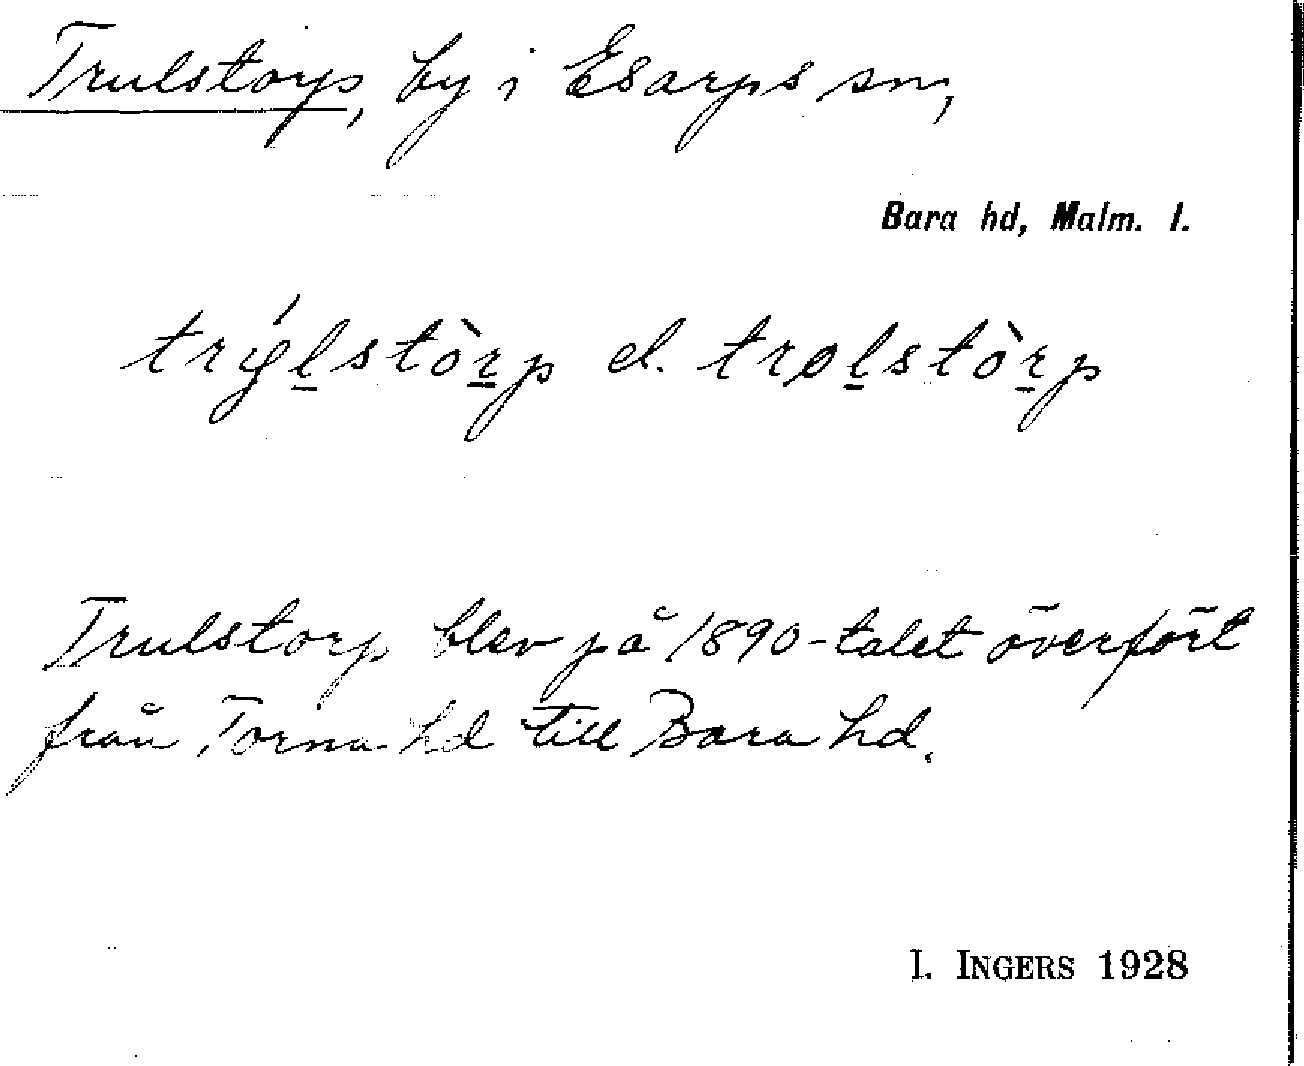 Trulstorp, by i Esarps sn,
Bara hd, Malm. l.
trýl̠stòr̠p el. trøl̠stòr̠p
Trulstorp blev på 1890-talet överfört
från Torna hd till Bara hd.
I. INGERS 1928